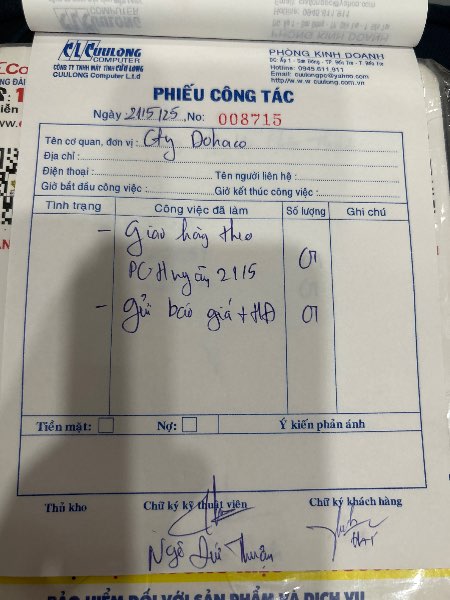 CLC CUULONG
COMPUTER
CÔNG TY TNHH MÁY TÍNH CỬU LONG
CUULONG Computer L.t.d
PHÒNG KINH DOANH
ĐC: Ấp 1 - Sơn Đông - TP. Bến Tre - T. Bến Tre
Hotline: 0945.611.911
Email: cuulongpc@yahoo.com
http:/w.w.w.cuulong.com.vn
PHIẾU CÔNG TÁC
Ngày 21/5/25 No: 008715
Tên cơ quan, đơn vị: Cty Dohaco
Địa chỉ:
Điện thoại: Tên người liên hệ:
Giờ bắt đầu công việc: Giờ kết thúc công việc:
Tình trạng Công việc đã làm Số lượng Ghi chú
- Giao hàng theo
PGH ngày 21/5 01
- Gửi báo giá + HĐ 01
Tiền mặt: Nợ: Ý kiến phản ánh
Thủ kho Chữ ký kỹ thuật viên Chữ ký khách hàng
Ngô Đức Thuận
BẢO HIỂM ĐỐI VỚI SẢN PHẨM VÀ DỊCH VỤ